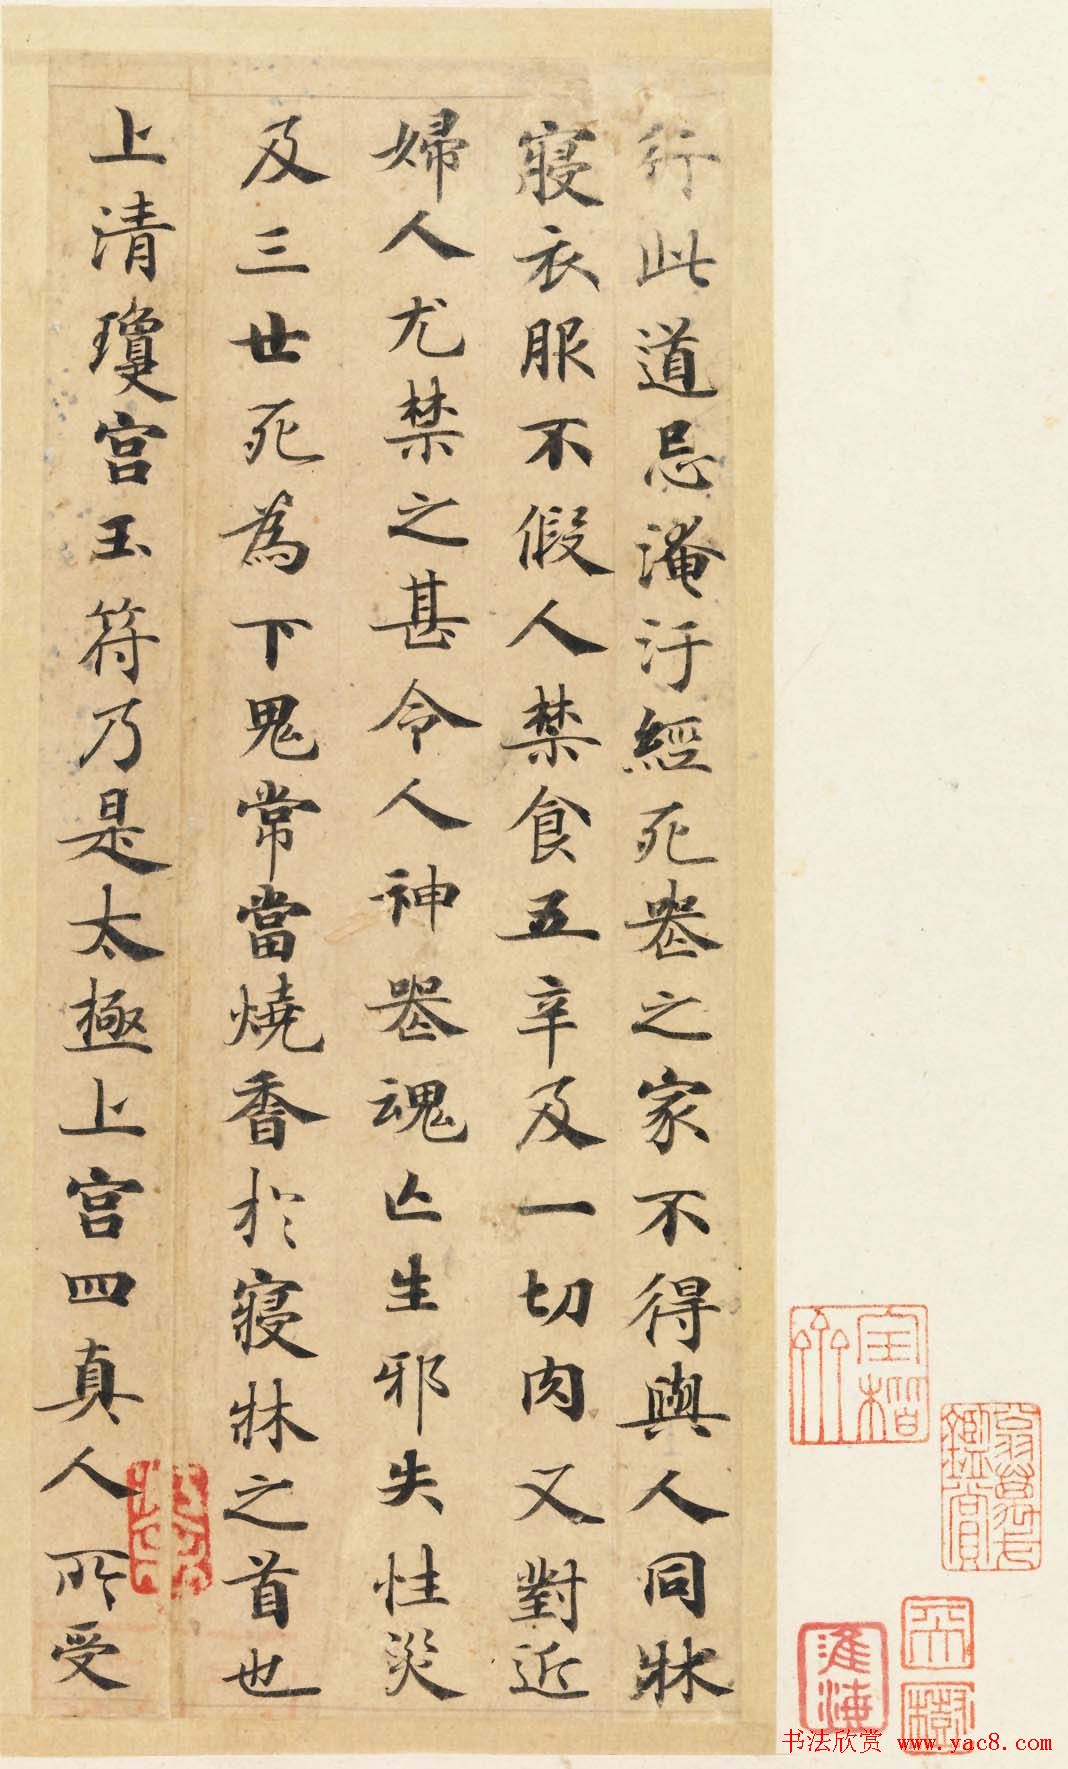 行此道忌淹汙經死喪之家不得與人同牀
寢衣服不假人禁食五辛及一切肉又對近
婦人尤禁之甚令人神喪魂亡生邪失性災
及三世死為下鬼常當燒香於寢牀之首也
上清瓊宮玉符乃是太極上宮四真人所受
鑑賞
淮海
书法欣赏 www.yac8.com